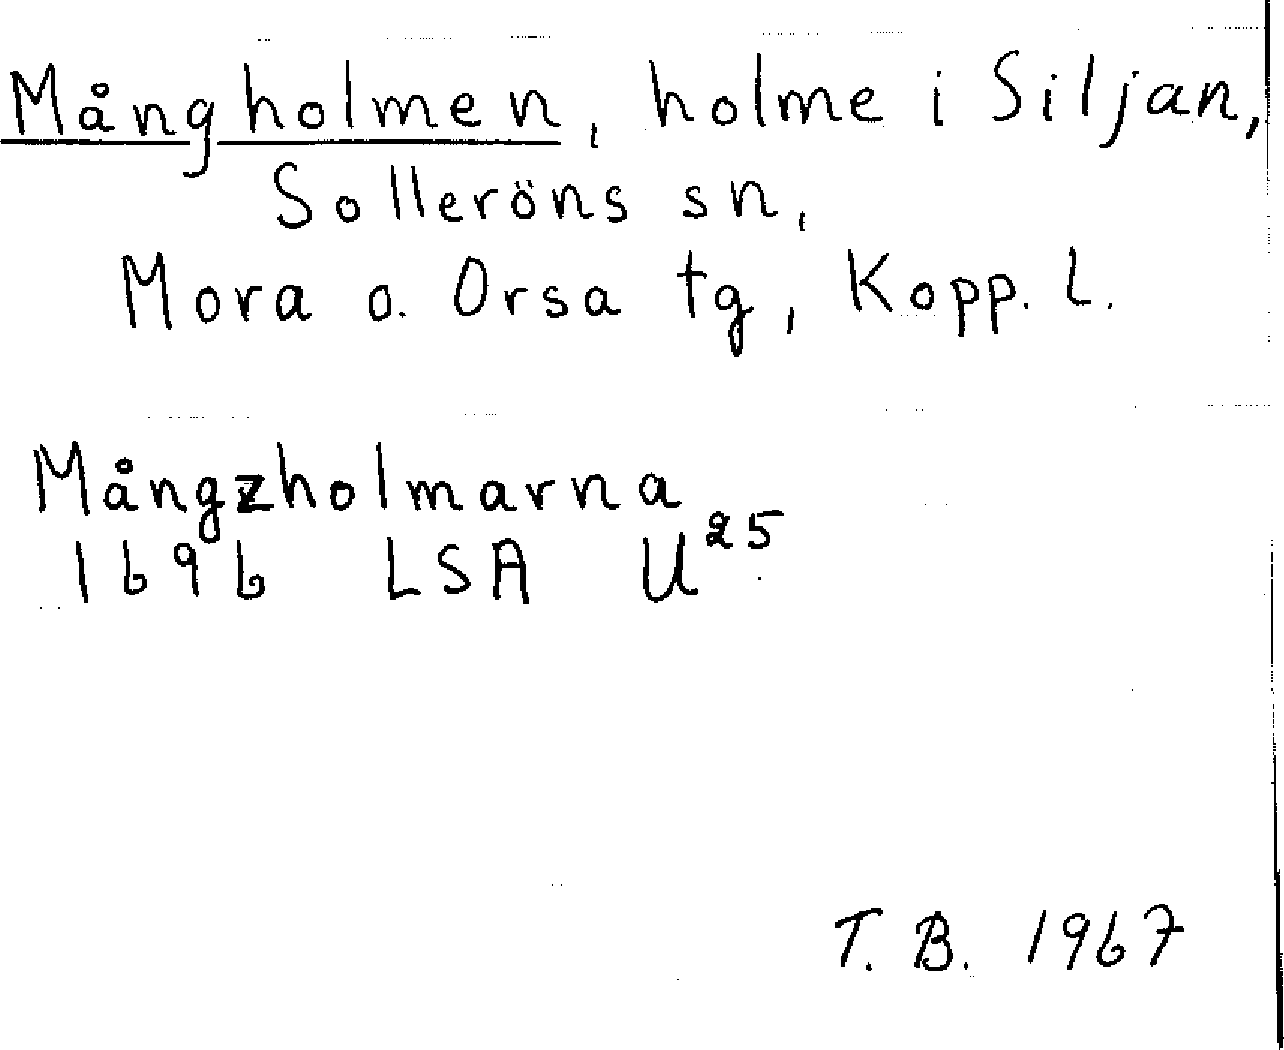 Mångholmen, holme i Siljan,
Solleröns sn,
Mora o. Orsa tg, Kopp. L.
Mångzholmarna
1696 LSA U²⁵
T. B. 1967